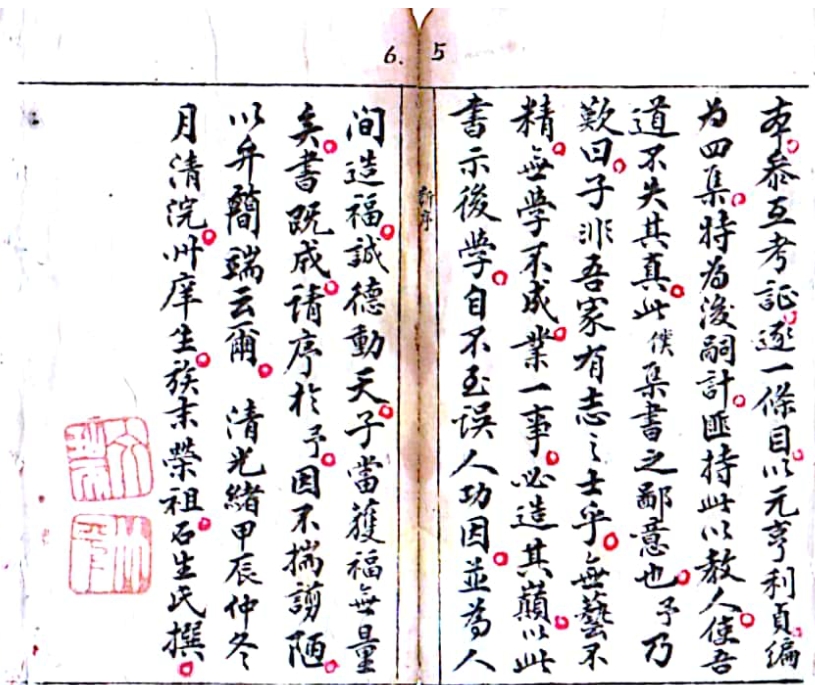 5
本。叅互考証。逐一條目。以元亨利貞。編
为四集。特為後嗣計。匪持此以教人。使吾
道不失其真。此僕集書之鄙意也。予乃
歎曰。子非吾家有志之士乎。無藝不
精。無學不成。業一事。必造其巔。以此
書示後學。自不至误人功因。並為人
新序
6.
间造福。誠德動天。子當獲福無量
矣。書既成。请序於予。因不揣謭陋。
以弁簡端云爾。 清光緒甲辰仲冬
月清浣。州庠生。族末榮祖。石生氏撰。